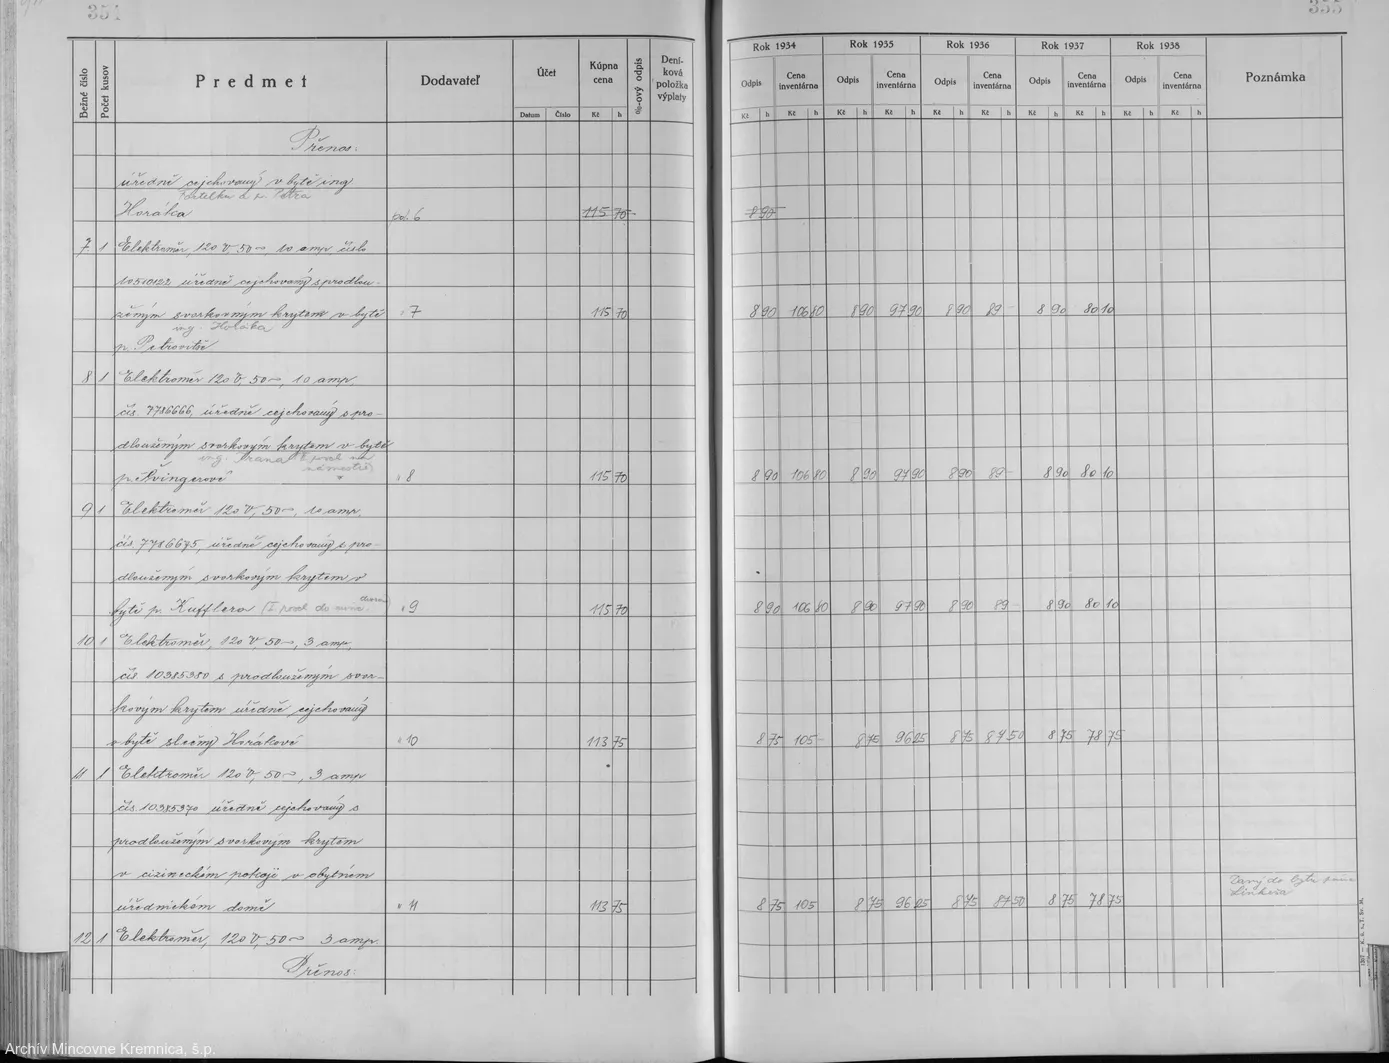 354
355
Bežné číslo
Počet kusov
Predmet
Dodavateľ
Účet
Datum Číslo
Kúpna cena
Kč h
%-ový odpis
Deníková položka výplaty
Rok 1934 Rok 1935 Rok 1936 Rok 1937 Rok 1938
Odpis Cena inventárna Odpis Cena inventárna Odpis Cena inventárna Odpis Cena inventárna Odpis Cena inventárna
Kč h Kč h Kč h Kč h Kč h Kč h Kč h Kč h Kč h Kč h
Poznámka
Přenos:
úředně cejchovaný v bytě ing
Horáka 6 115 70 8 90
7 1 Elektroměr, 120 V, 50~, 10 amp číslo
10510122 úředně cejchovaný s prodlou-
ženým svorkovným krytem v bytě " 7 115 70 8 90 106 80 8 90 97 90 8 90 89 - 8 90 80 10
ing. Horáka
p. Petrovitse
8 1 Elektroměr 120 V, 50~, 10 amp.
čís. 7786666, úředně cejchovaný s pro-
dlouženým svorkovým krytem v bytě
p. Švingerové " 8 115 70 8 90 106 80 8 90 97 90 8 90 89 - 8 90 80 10
9 1 Elektroměr 120 V, 50~, 10 amp.
čís. 7786675, úředně cejchovaný s pro-
dlouženým svorkovým krytem v
bytě p. Kufflera " 9 115 70 8 90 106 80 8 90 97 90 8 90 89 - 8 90 80 10
10 1 Elektroměr, 120 V, 50~, 3 amp.
čís. 10385380 s prodlouženým svor-
kovým krytem úředně cejchovaný
v bytě slečny Horákové " 10 113 75 8 75 105 - 8 75 96 25 8 75 87 50 8 75 78 75
11 1 Elektroměr 120 V, 50~, 3 amp
čís. 10385370 úředně cejchovaný s
prodlouženým svorkovým krytem
v cizineckém pokoji v obytném
úřednickém domě " 11 113 75 8 75 105 8 75 96 25 8 75 87 50 8 75 78 75
12 1 Elektroměr, 120 V, 50~ 3 amp.
Přenos:
Archív Mincovne Kremnica, š.p.